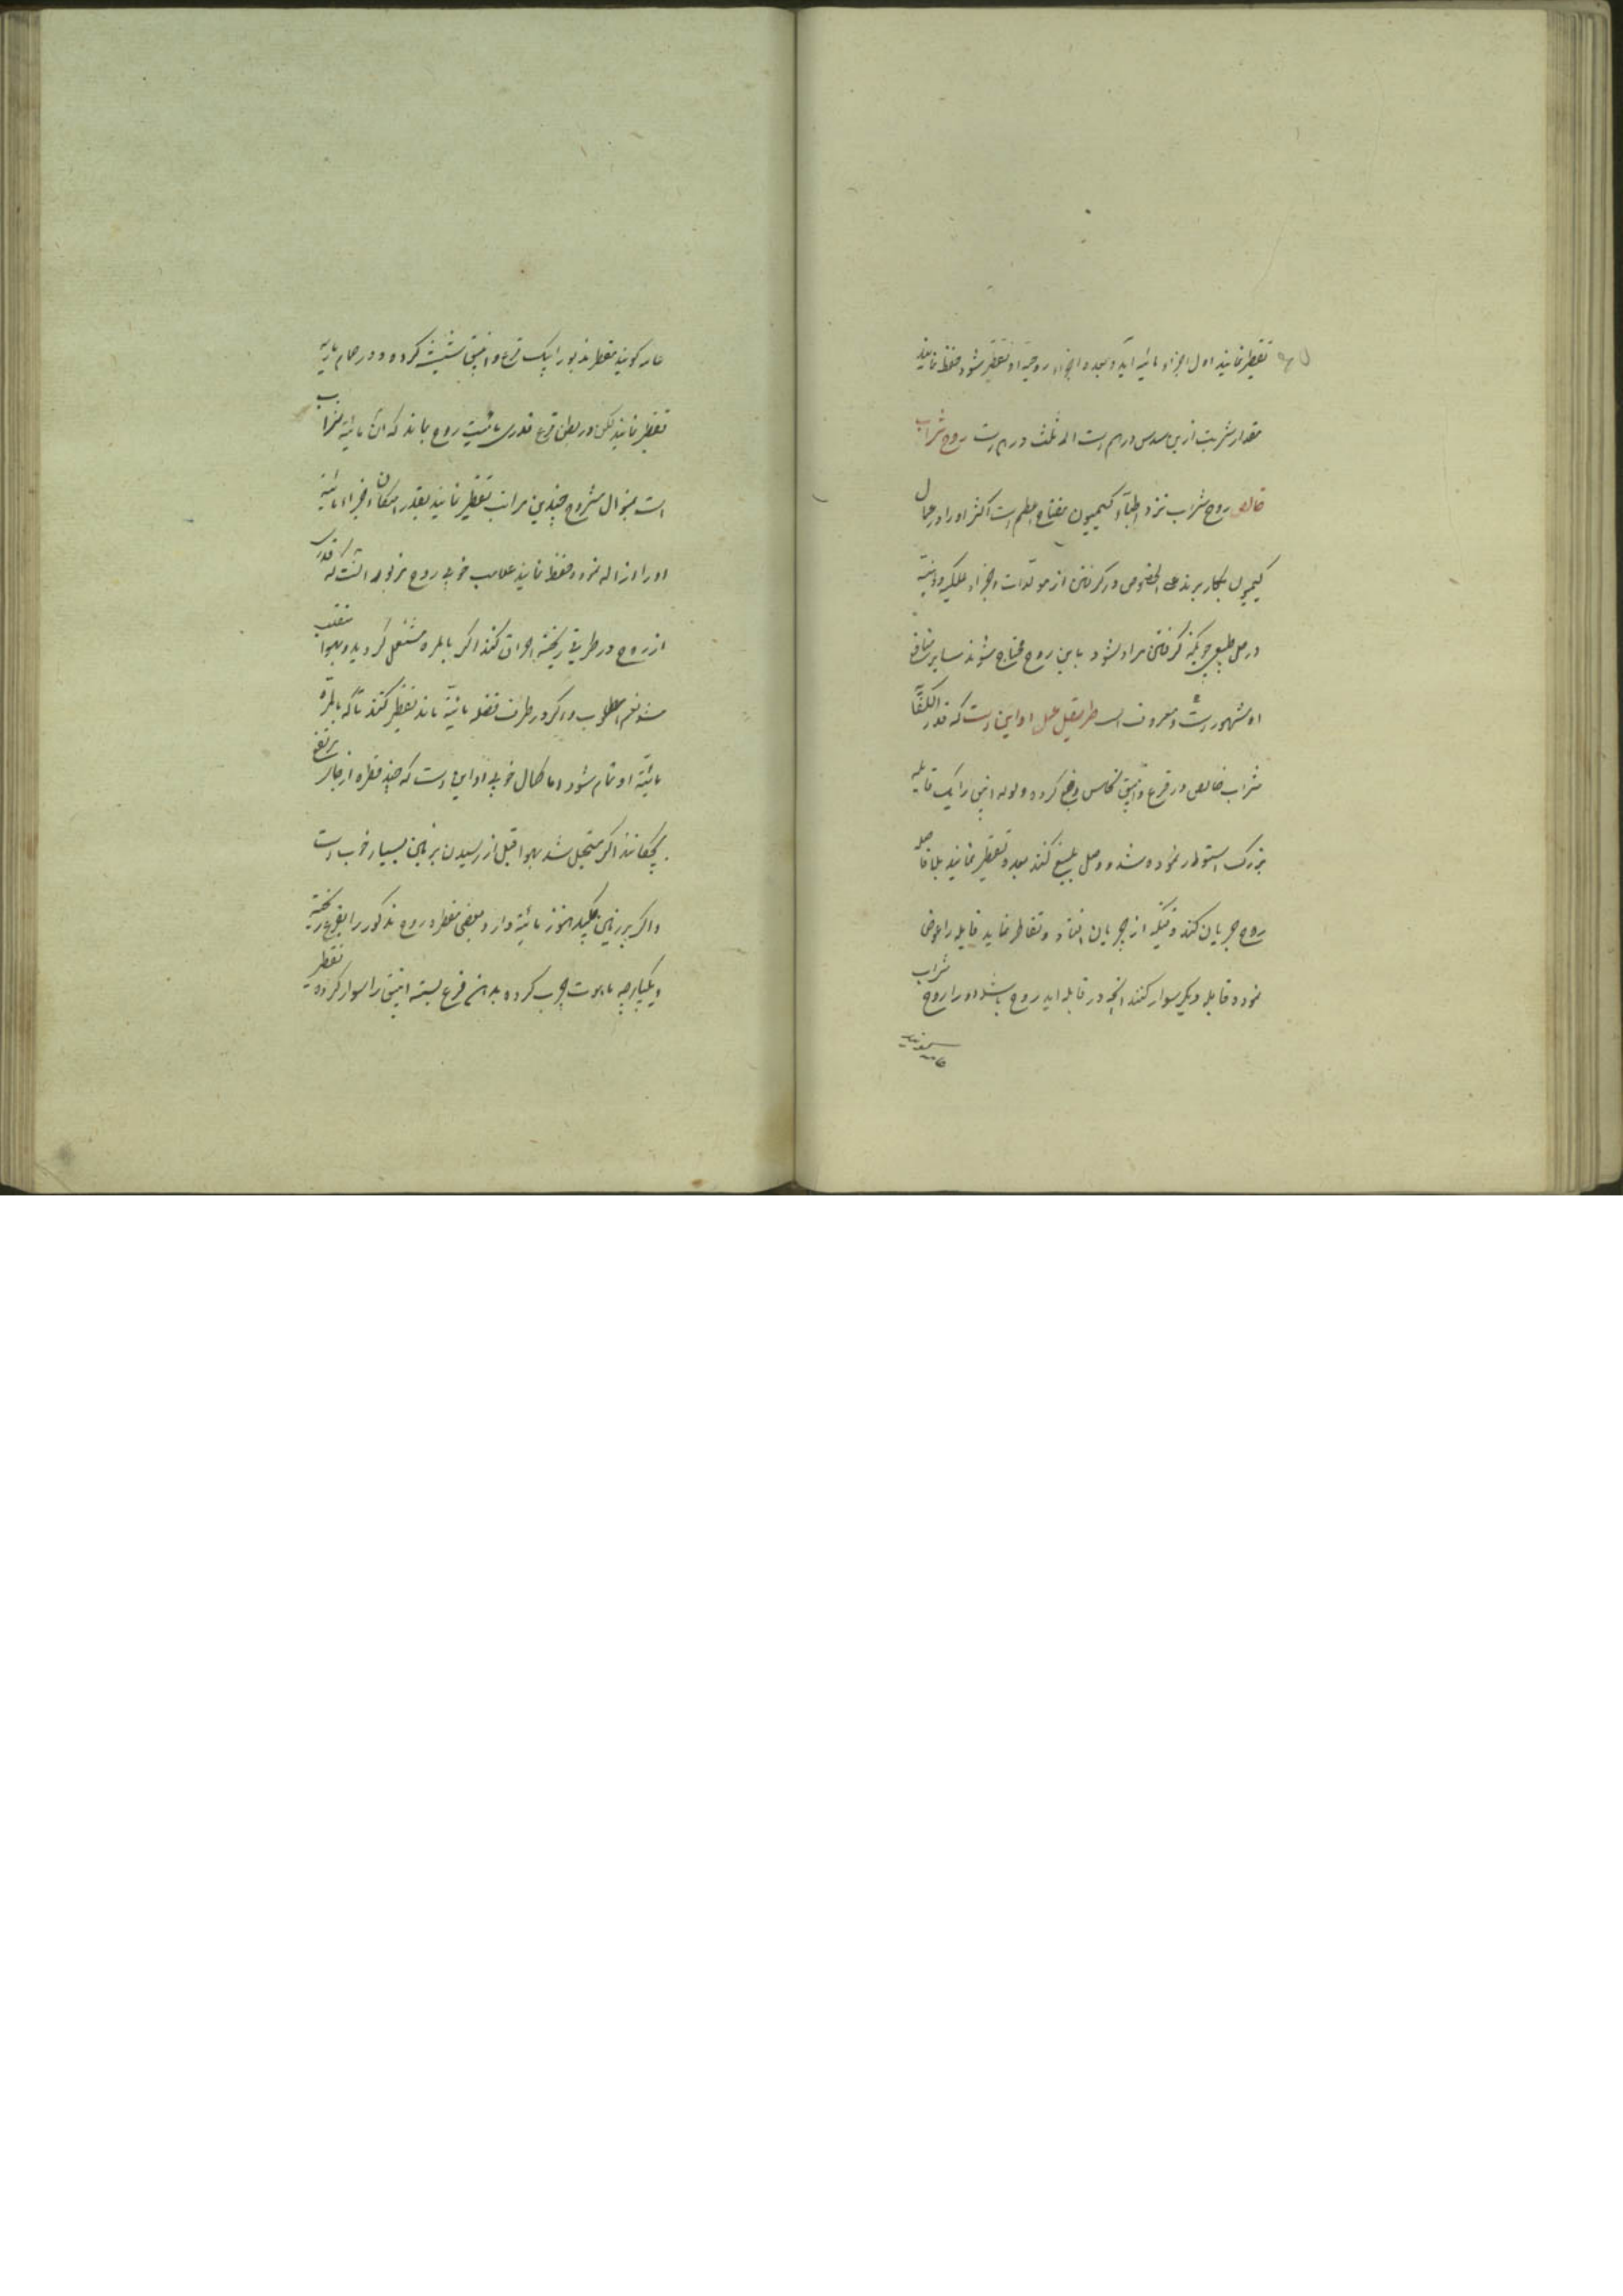 تقطیر نمایند اول اجزاء مائیه آید و بعده اجزاء روحیه او تقطیر شود حفظ نمایند
مقدار شربت ازین سدس درهم است الی ثلث درهم است روح شراب
خالص روح شراب نزد اطباء کیمیون مفتاح اعظم است اکثر او را در اعمال
کیمیون بکار برند علی الخصوص در گرفتن از مولدات اجزاء
در اصل گرفتن مراد شود باین روح محتاج شوند سایر منافع
او مشهور است و معروف است طریق عمل او این است که قدر
شراب خالص در قرع و انبیق نحاس وضع کرده و لوله انبیق را یک قابله
بزرگ استوار نموده شد و وصل بلیغ کنند بعده تقطیر نمایند بلا فاصله
روح جریان کند وقتیکه از جریان افتاد و تقاطر نماید قابله را عوض
نموده قابله دیگر سوار کنند آنچه در قابله آید روح باشد او را روح شراب
عامه گویند مقطر مذبور را بیک قرع و انبیق شیشه کرده و در حمام ماریه
تقطیر نمایند لکن در بطن قرع قدری مائیت روح بماند که آن مائیه شراب
است بمنوال مشروح چندین مراتب تقطیر نمایند بقدر امکان اجزاء مائیه
او را ازاله نموده حفظ نمایند علامت خوبی روح مزبور آنست که قدری
از روح در ظرفی ریخته احراق کنند اگر بالمره مشتعل گردید و بهوا منقلب
شود نعم المطلوب و اگر در ظرف فضله مائیه ماند تقطیر کنند تا که بالمره
مائیه او تمام شود اما کمال خوبی او این است که چند قطره از جای مرتفع
بچکانند اگر مستحیل شد بهوا قبل از رسیدن بزمین بسیار خوب است
و اگر بر زمین چکید هنوز مائیه دارد بعضی مقطره روح مذکور را بقرع ریخته
و یکپارچه بموت چرب کرده بدهن قرع بسته انبیق را سوار کرده تقطیر